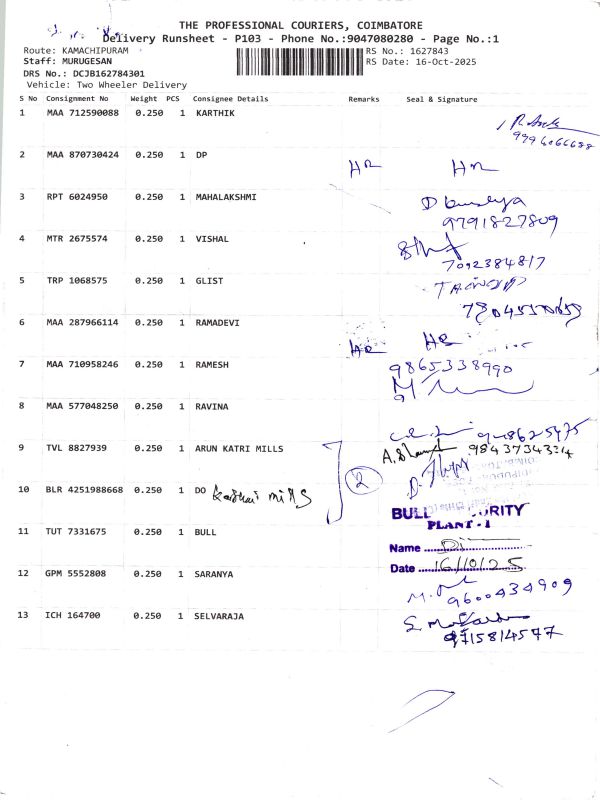 THE PROFESSIONAL COURIERS, COIMBATORE
Delivery Runsheet - P103 - Phone No.:9047080280 - Page No.:1
Route: KAMACHIPURAM RS No.: 1627843
Staff: MURUGESAN RS Date: 16-Oct-2025
DRS No.: DCJB162784301
Vehicle: Two Wheeler Delivery
S No Consignment No Weight PCS Consignee Details Remarks Seal & Signature
1 MAA 712590088 0.250 1 KARTHIK
9996066688
2 MAA 870730424 0.250 1 DP
3 RPT 6024950 0.250 1 MAHALAKSHMI
9791827809
4 MTR 2675574 0.250 1 VISHAL
7092384817
5 TRP 1068575 0.250 1 GLIST
6 MAA 287966114 0.250 1 RAMADEVI
7 MAA 710958246 0.250 1 RAMESH 9865338990
8 MAA 577048250 0.250 1 RAVINA
9 TVL 8827939 0.250 1 ARUN KATRI MILLS
10 BLR 4251988668 0.250 1 DO mills 2
BULL
PLANT - I
11 TUT 7331675 0.250 1 BULL
Name
Date 16/10/25
12 GPM 5552808 0.250 1 SARANYA
9600434909
13 ICH 164700 0.250 1 SELVARAJA
9715814577